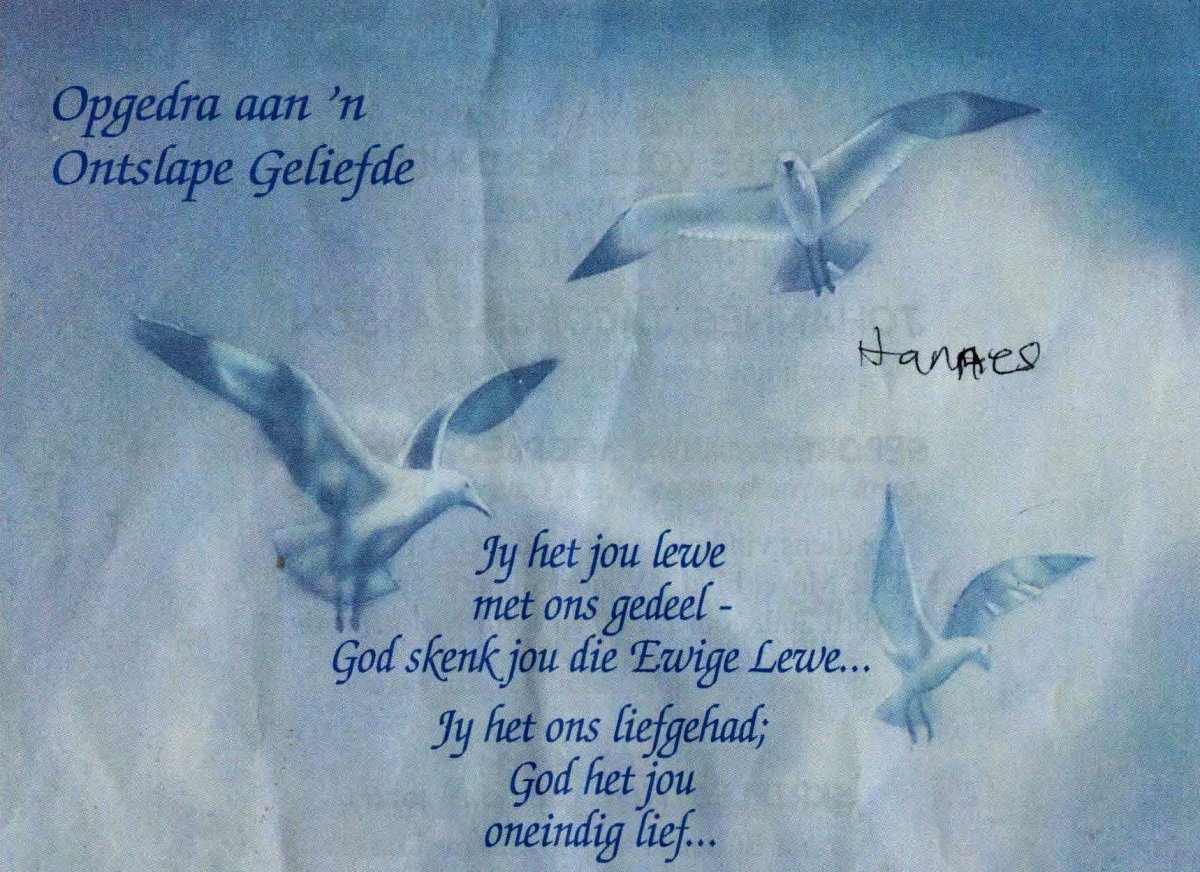 Opgedra aan 'n
Ontslape Geliefde
Hannes
Jy het jou lewe
met ons gedeel -
God skenk jou die Ewige Lewe...
Jy het ons liefgehad;
God het jou
oneindig lief...